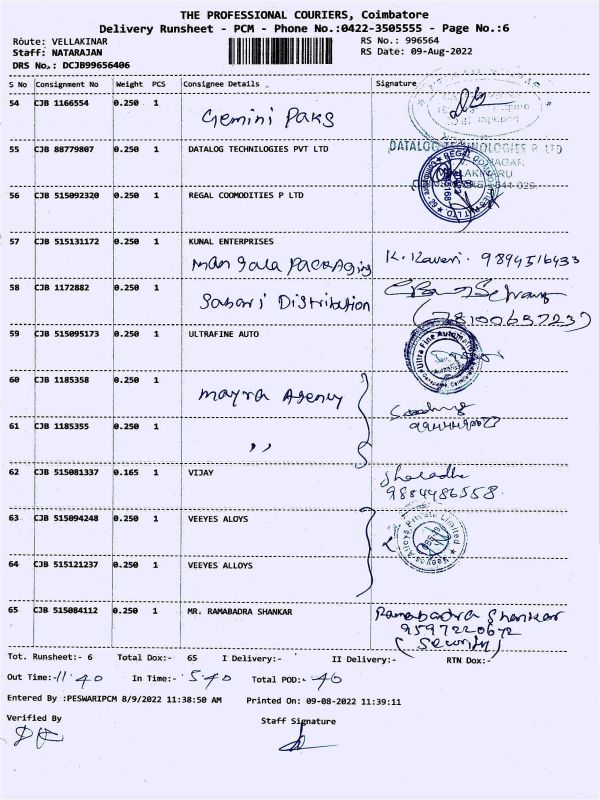 THE PROFESSIONAL COURIERS, Coimbatore
Delivery Runsheet - PCM - Phone No.:0422-3505555 - Page No.:6
Route: VELLAKINAR RS No.: 996564
Staff: NATARAJAN RS Date: 09-Aug-2022
DRS No.: DCJB99656406
S No Consignment No Weight PCS Consignee Details Signature
54 CJB 1166554 0.250 1 Gemini Paks
55 CJB 88779807 0.250 1 DATALOG TECHNILOGIES PVT LTD DATALOG TECHNOLOGIES P. LTD
56 CJB 515092320 0.250 1 REGAL COOMODITIES P LTD
57 CJB 515131172 0.250 1 KUNAL ENTERPRISES
Mangala Packaging K. Kaveri. 9894516433
58 CJB 1172882 0.250 1 Sabari Distribution
(7810065723)
59 CJB 515095173 0.250 1 ULTRAFINE AUTO Ultra Fine Automation
60 CJB 1185358 0.250 1 Mayra Agency
61 CJB 1185355 0.250 1 ,,
62 CJB 515081337 0.165 1 VIJAY Sharadha
9884486558
63 CJB 515094248 0.250 1 VEEYES ALOYS Veeyes Alloys Private Limited
64 CJB 515121237 0.250 1 VEEYES ALLOYS
65 CJB 515084112 0.250 1 MR. RAMABADRA SHANKAR Ramabadra Shankar
9597220672
(Security)
Tot. Runsheet:- 6 Total Dox:- 65 I Delivery:- II Delivery:- RTN Dox:-
Out Time:- 11.40 In Time:- 5.40 Total POD:- 46
Entered By :PESWARIPCM 8/9/2022 11:38:50 AM Printed On: 09-08-2022 11:39:11
Verified By Staff Signature